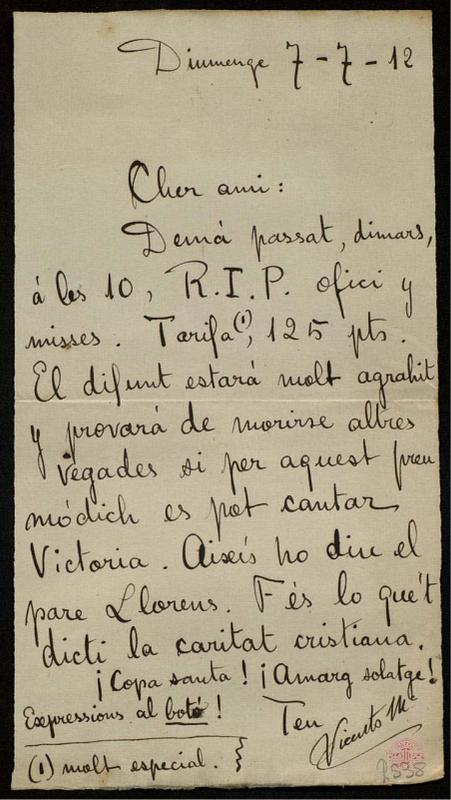 Diumenge 7-7-12
Cher ami:
Demá passat, dimars,
á les 10, R.I.P. ofici y
misses. Tarifa(1), 125 pts.
El difunt estará molt agrahit
y provará de morirse altres
vegades si per aquest preu
módich es pot cantar
Victoria. Aixís ho diu el
pare Llorens. Fés lo que't
dicti la caritat cristiana.
¡Copa santa! ¡Amarg solatge!
Expressions al botó!
Teu
Vicents M
(1) molt especial. }